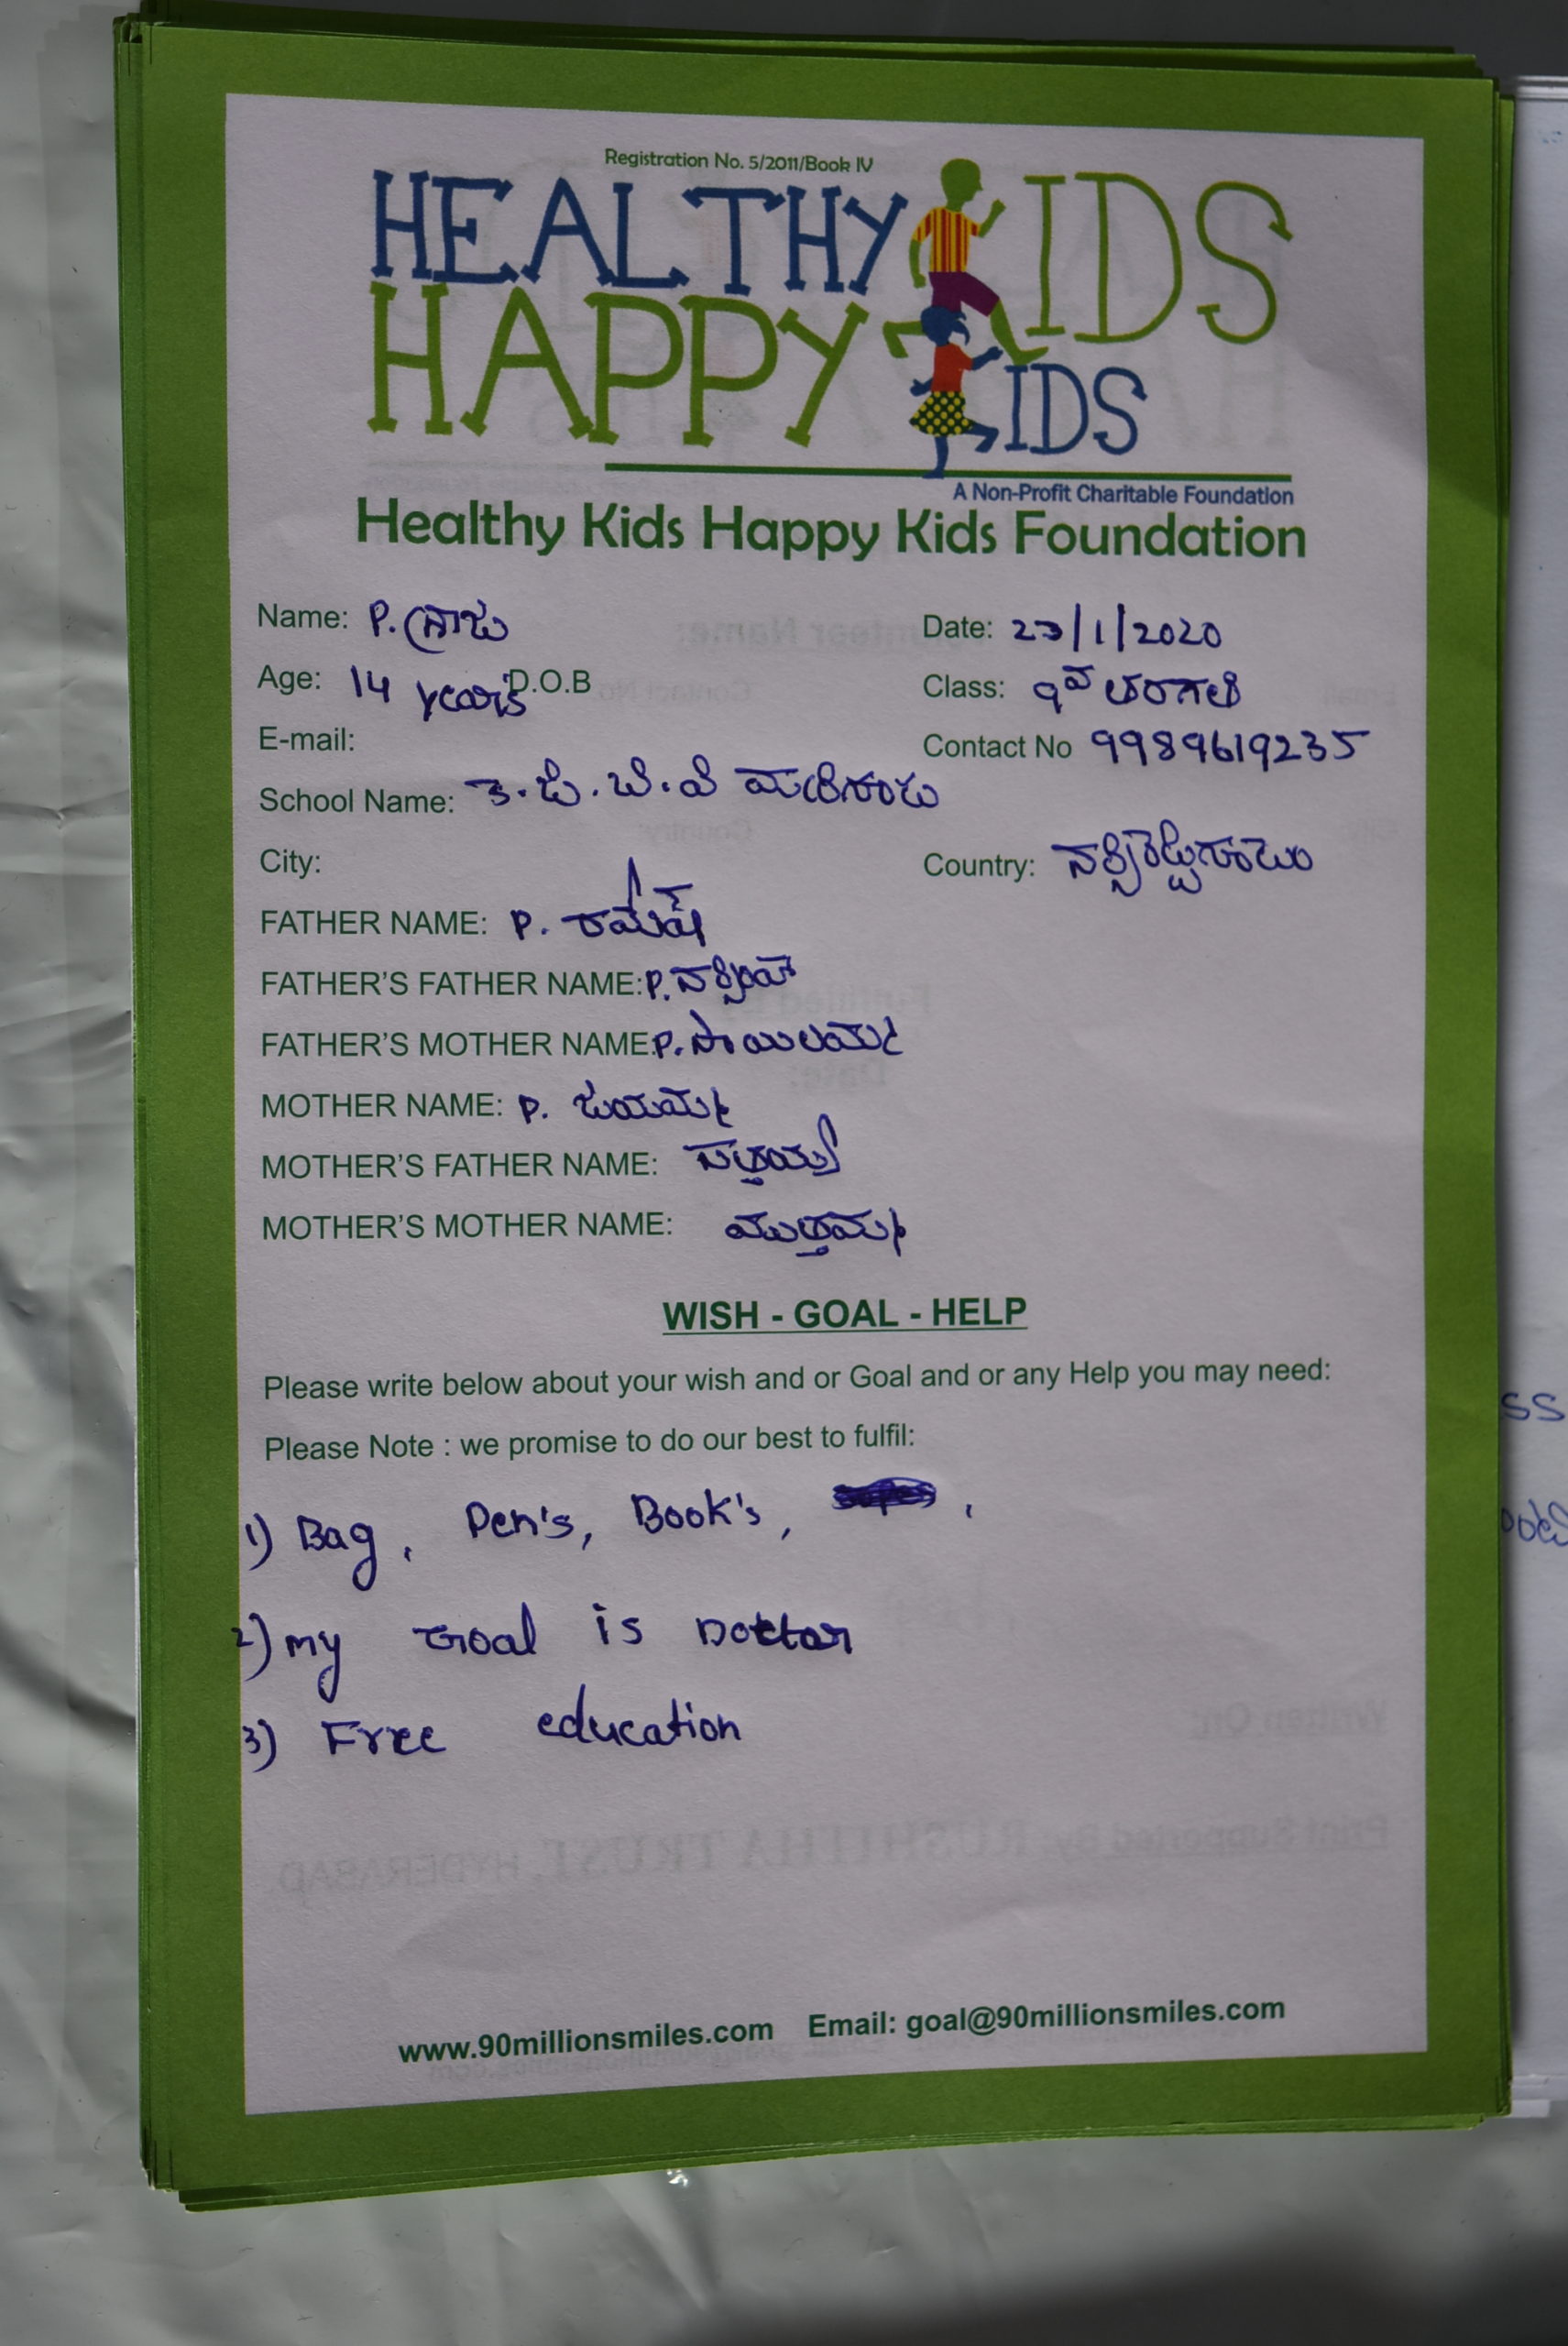 Registration No. 5/2011/Book IV
HEALTHY KIDS
HAPPY KIDS
A Non-Profit Charitable Foundation
Healthy Kids Happy Kids Foundation
Name: P. Date: 23/1/2020
Age: 14 years D.O.B Class: 9వ తరగతి
E-mail: Contact No 9989619235
School Name:
City: Country:
FATHER NAME: P. రమేష్
FATHER'S FATHER NAME: P.
FATHER'S MOTHER NAME: P. సాయిలమ్మ
MOTHER NAME: P. జయమ్మ
MOTHER'S FATHER NAME: సత్తయ్య
MOTHER'S MOTHER NAME: ముత్తమ్మ
WISH - GOAL - HELP
Please write below about your wish and or Goal and or any Help you may need:
Please Note : we promise to do our best to fulfil:
1) Bag, Pen's, Book's, ,
2) my Goal is Doctor
3) Free education
www.90millionsmiles.com Email: goal@90millionsmiles.com